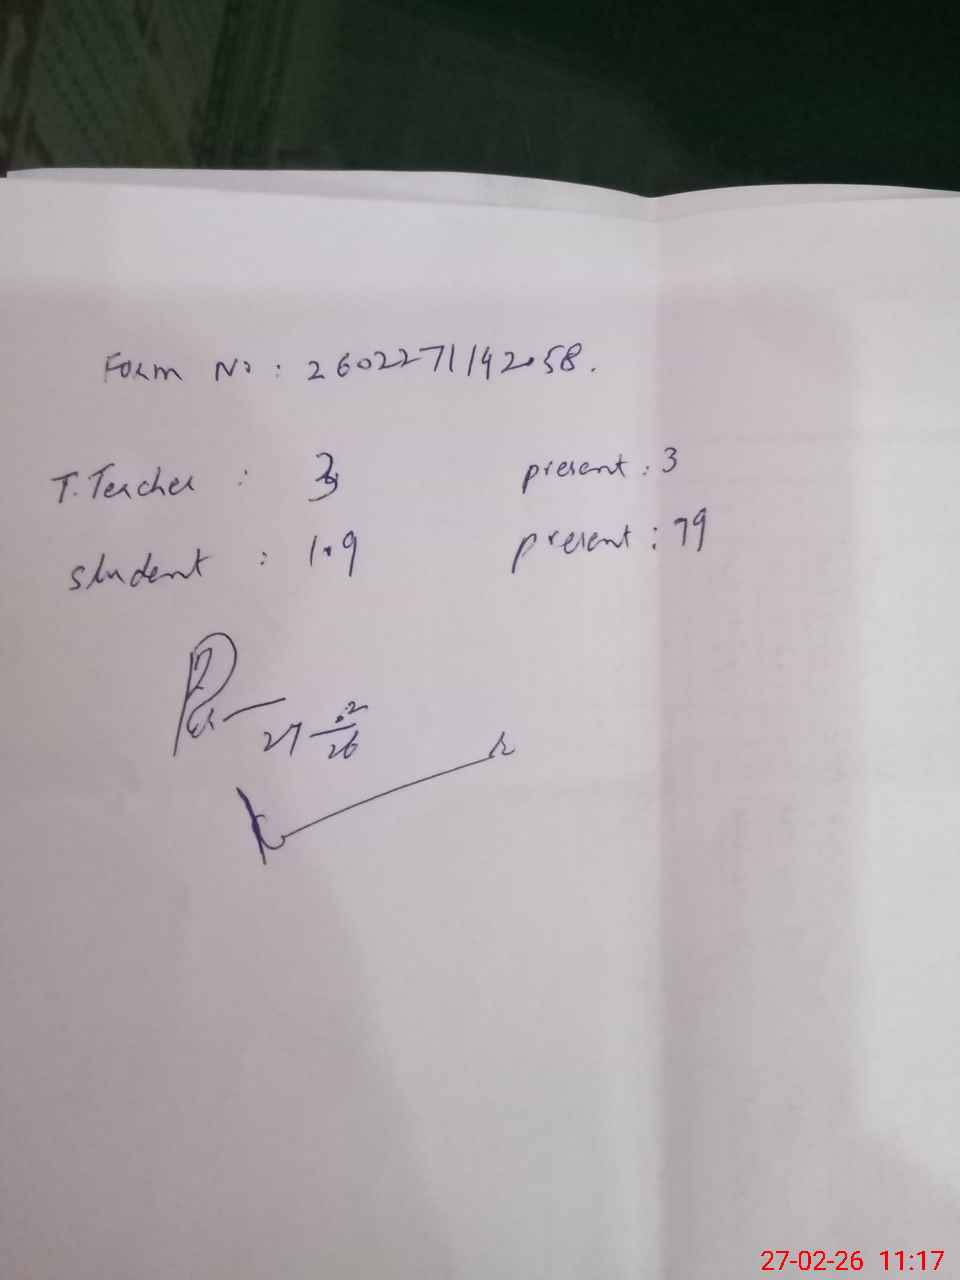 Form No : 2602271142058.
T. Teacher : 3 present : 3
student : 109 present : 79
27 02/26
27-02-26 11:17